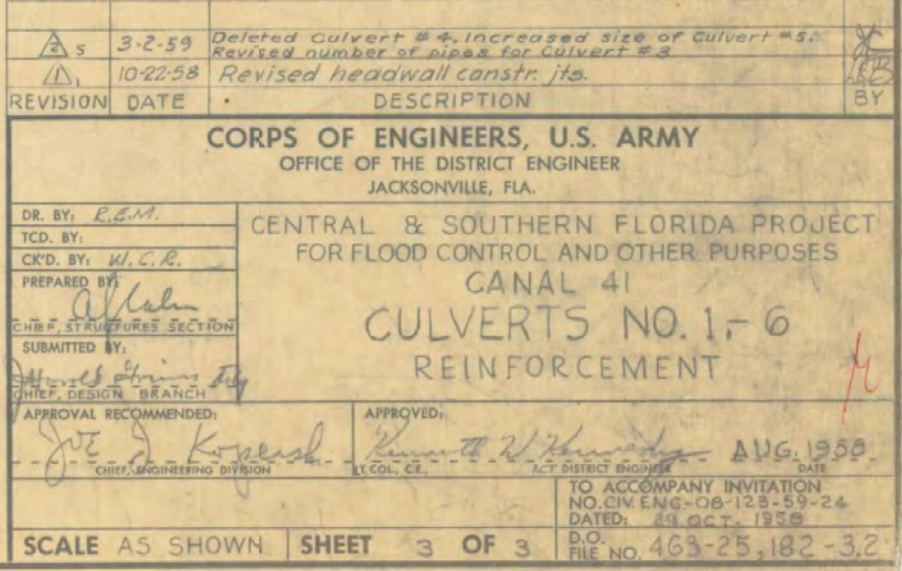 2 5 3-2-59 Deleted Culvert # 4. Increased size of Culvert #5.
Revised number of pipes for Culvert #3
1 1 10-22-58 Revised headwall constr. jts.
REVISION DATE DESCRIPTION BY
CORPS OF ENGINEERS, U.S. ARMY
OFFICE OF THE DISTRICT ENGINEER
JACKSONVILLE, FLA.
DR. BY: R.E.M.
TCD. BY:
CK'D. BY: W.C.R.
PREPARED BY:
CHIEF, STRUCTURES SECTION
SUBMITTED BY:
CHIEF, DESIGN BRANCH
CENTRAL & SOUTHERN FLORIDA PROJECT
FOR FLOOD CONTROL AND OTHER PURPOSES
CANAL 41
CULVERTS NO. 1.- 6
REINFORCEMENT
APPROVAL RECOMMENDED:
CHIEF, ENGINEERING DIVISION
APPROVED:
Kenneth W Kennedy AUG. 1958
LT. COL., C.E., ACT. DISTRICT ENGINEER DATE
TO ACCOMPANY INVITATION
NO. CIV. ENG-08-123-59-24
DATED: 29 OCT. 1958
SCALE AS SHOWN SHEET 3 OF 3
D.O.
FILE NO. 463-25,182-3.2